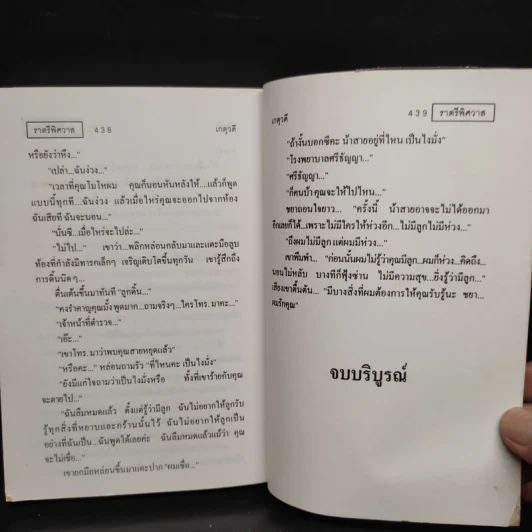 ราตรีพิศวาส 438 เกตุวดี
หรือยังว่าหึง..."
"เปล่า...ฉันง่วง..."
"เวลาที่คุณโมโหผม คุณก็นอนหันหลังให้...แล้วก็พูด
แบบนี้ทุกที...ฉันง่วง แล้วเมื่อไหร่คุณจะออกไปจากห้อง
ฉันเสียที ฉันจะนอน..."
"นั่นซี...เมื่อไหร่จะไปล่ะ..."
"ไม่ไป..." เขาว่า...พลิกหล่อนกลับมาและแตะมือลูบ
ท้องที่กำลังมีทารกเล็กๆ เจริญเติบโตขึ้นทุกวัน เขารู้สึกถึง
การดิ้นนิดๆ...
ตื่นเต้นขึ้นมาทันที "ลูกดิ้น..."
"คงรำคาญคุณมั้งพูดมาก...ถามจริงๆ...ใครโทร.มาคะ..."
"เจ้าหน้าที่ตำรวจ..."
"เอ๊ะ..."
"เขาโทร.มาว่าพบคุณสายหยุดแล้ว"
"หรือคะ..." หล่อนถามรัว "ที่ไหนคะ เป็นไงมั่ง"
"ยังมีแก่ใจถามว่าเป็นไงมั่งหรือ ทั้งที่เขาร้ายกับคุณ
จะตายไป..."
"ฉันลืมหมดแล้ว ตั้งแต่รู้ว่ามีลูก ฉันไม่อยากให้ลูกรับ
รู้ทุกสิ่งที่หยาบและกร้านนั้นไว้ ฉันไม่อยากให้ลูกเป็น
อย่างที่ฉันเป็น...ฉันพูดได้เลยค่ะ ฉันลืมหมดแล้วแม้ว่า คุณ
จะไม่เชื่อ..."
เขายกมือหล่อนขึ้นมาแตะปาก "ผมเชื่อ..."
เกตุวดี 439 ราตรีพิศวาส
"ถ้างั้นบอกซีคะ น้าสายอยู่ที่ไหน เป็นไงมั่ง"
"โรงพยาบาลศรีธัญญา..."
"ศรีธัญญา..."
"ก็คนบ้า คุณจะให้ไปไหน..."
ชยาถอนใจยาว... "ครั้งนี้ น้าสายอาจจะไม่ได้ออกมา
อีกเลยก็ได้...เพราะไม่มีใครให้ห่วงอีก...ไม่มีลูกไม่มีห่วง..."
"ถึงผมไม่มีลูก แต่ผมมีห่วง..."
เขาพึมพำ... "ก่อนนั้นผมไม่รู้ว่าคุณมีลูก...ผมก็ห่วง...คิดถึง...
นอนไม่หลับ บางทีก็ฟุ้งซ่าน ไม่มีความสุข...ยิ่งรู้ว่ามีลูก..."
เสียงเขาตื้นตัน... "มีบางสิ่งที่ผมต้องการให้คุณรับรู้นะ ชยา...
ผมรักคุณ"
จบบริบูรณ์